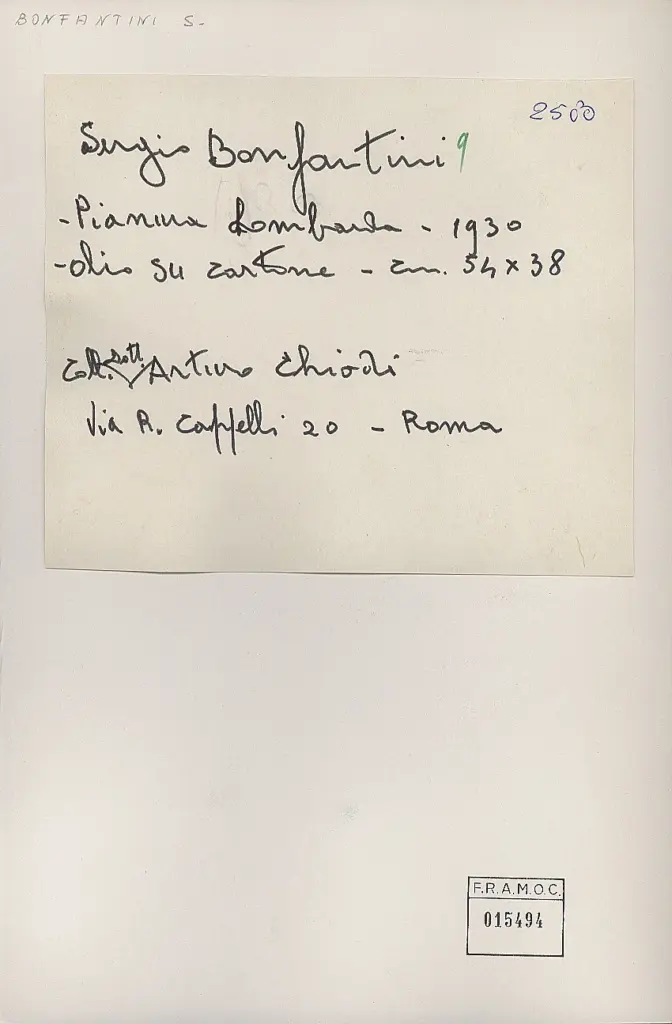 BONFANTINI S.
2500
Sergio Bonfantini 9
- Pianura Lombarda - 1930
- olio su cartone - cm. 54 x 38
Coll. dott. Arturo Chiodi
Via A. Cappelli 20 - Roma
F.R.A.M.O.C.
015494